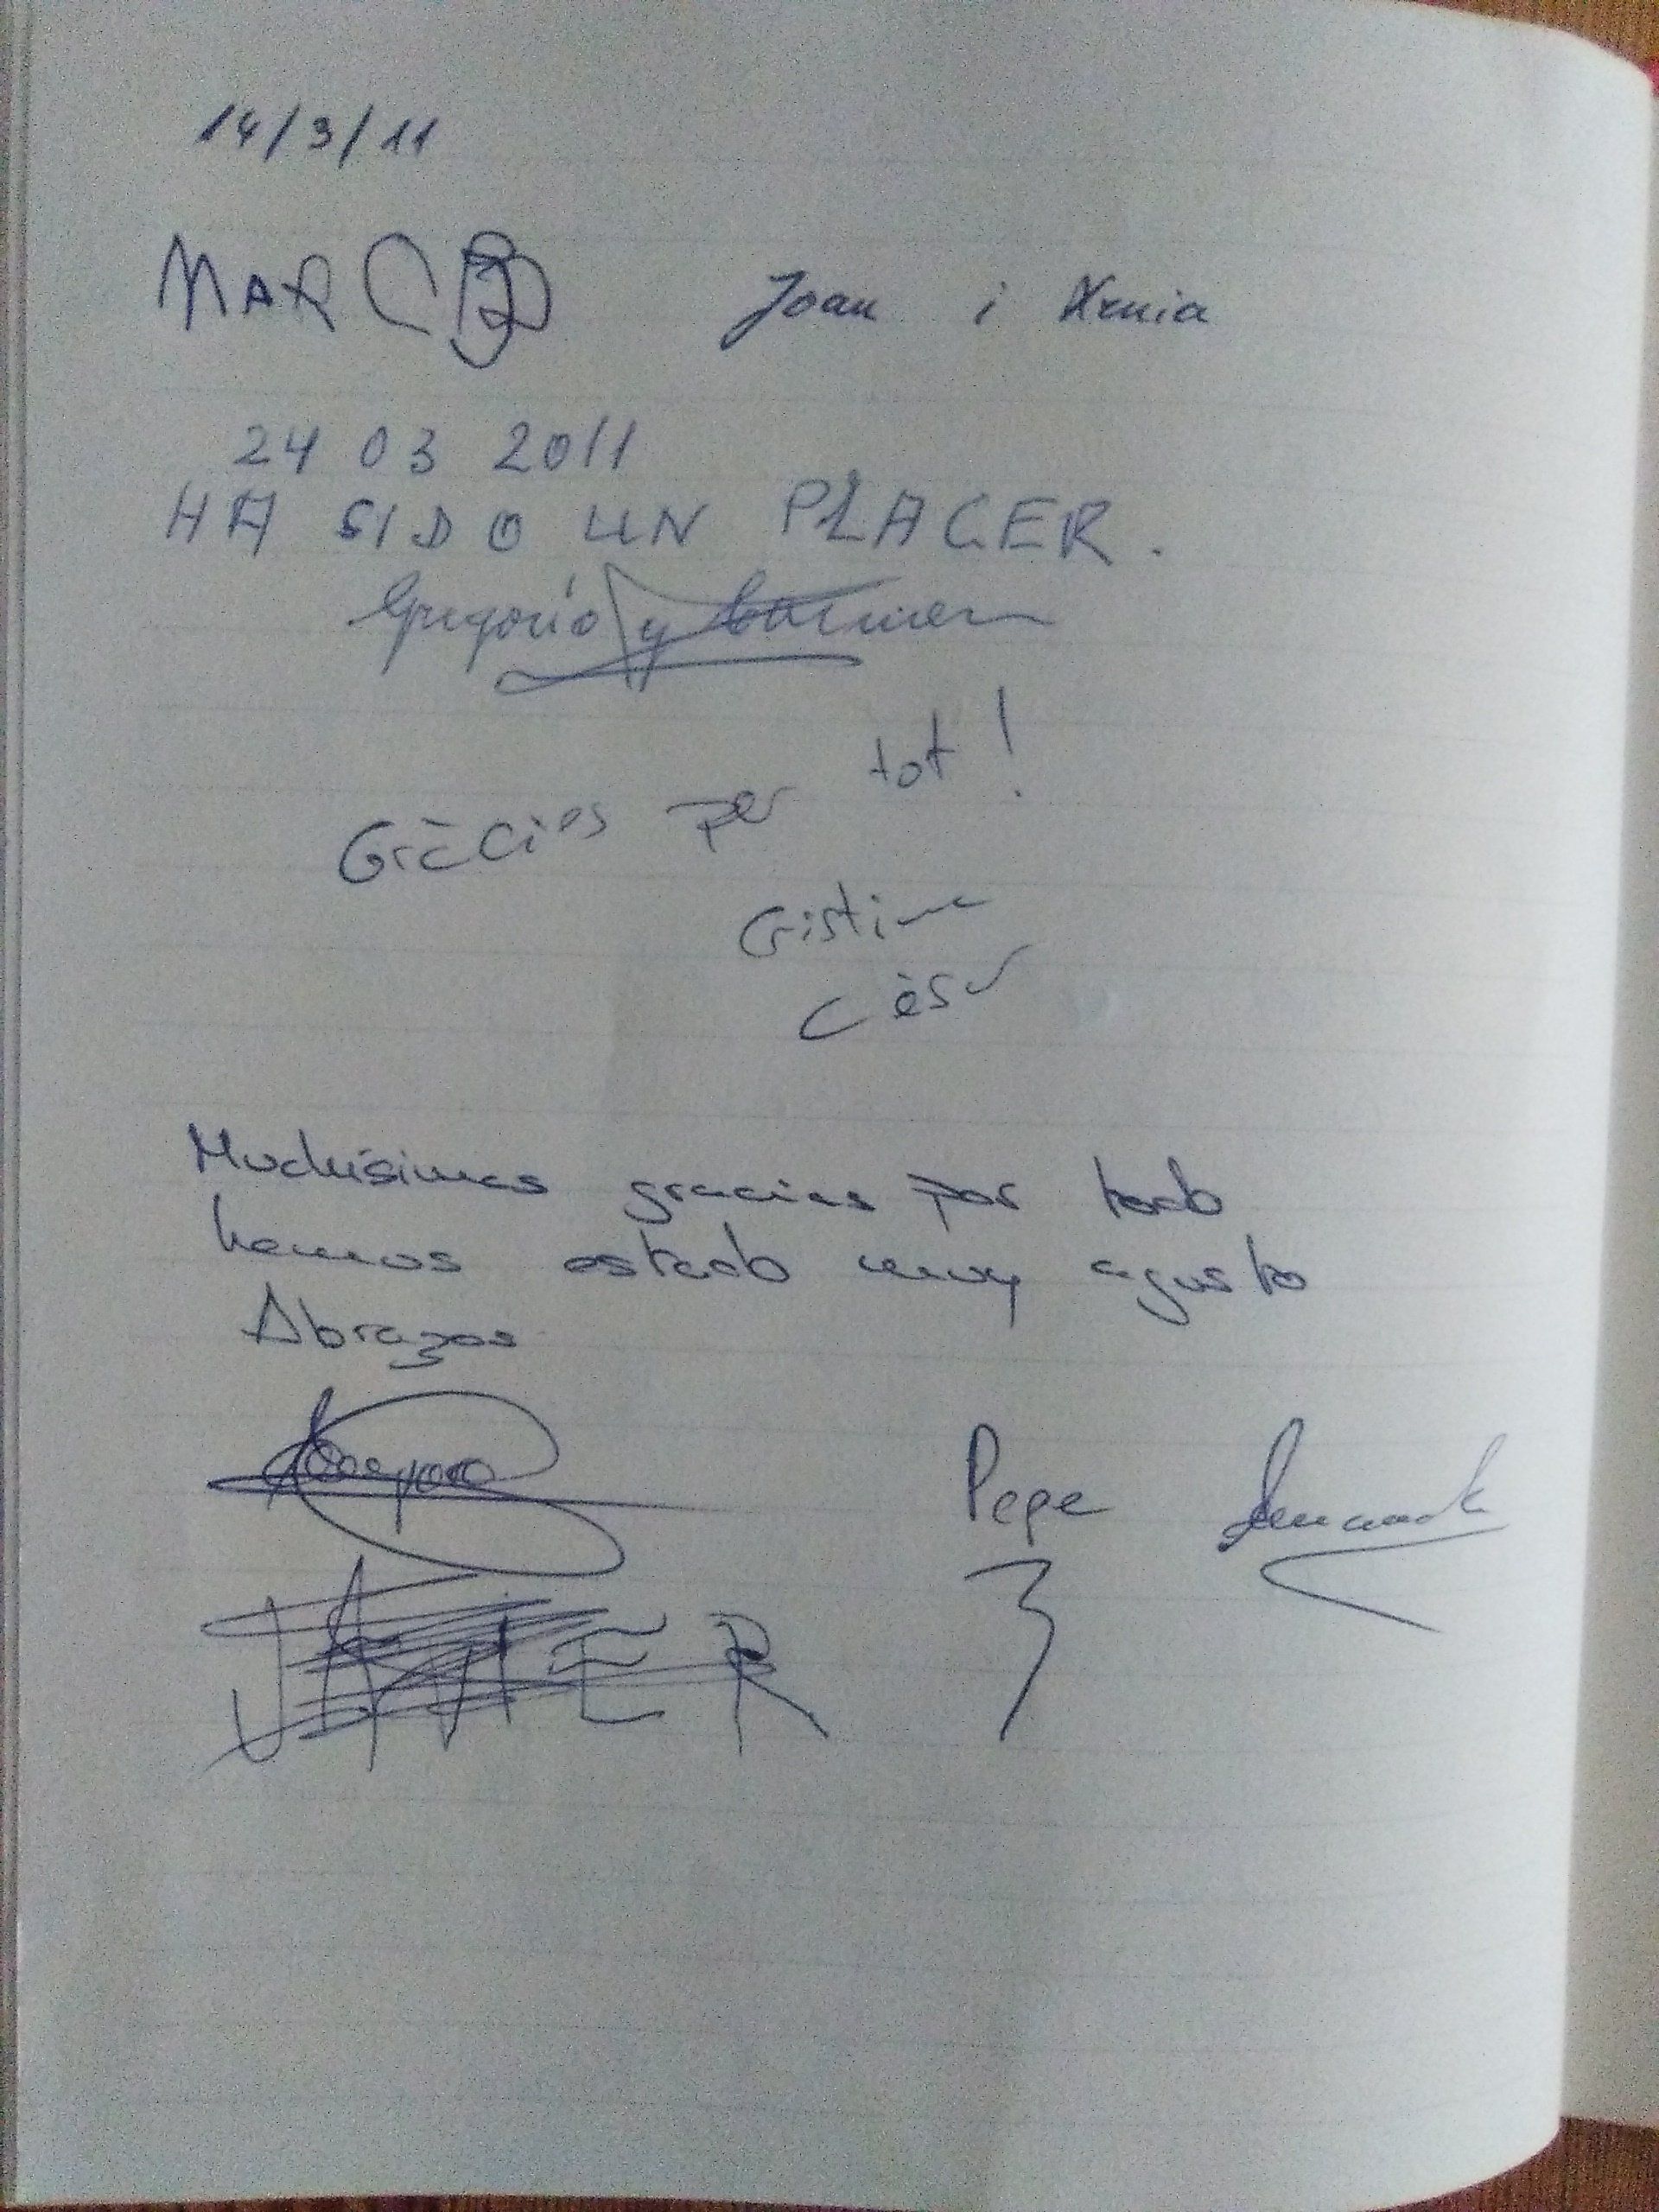 14/3/11
MARC Joan i Xenia
24 03 2011
HA SIDO UN PLACER.
Gregorio y Carmen
Gràcies per tot!
Cristina
Cèsar
Muchísimas gracias por todo
hemos estado muy agusto
Abrazos
Pepe
JAVIER